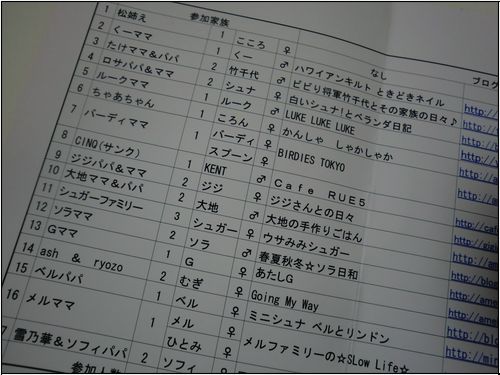 参加家族 ブログ
1 松姉え 1 こころ ♀ なし
2 くーママ 1 くー ♂ ハワイアンキルト ときどきネイル
3 たけママ&パパ 2 竹千代 ♂ ビビり将軍竹千代とその家族の日々♪ http://
4 ロサパパ&ママ 2 シュナ ♀ 白いシュナ!とベランダ日記 http://
5 ルークママ 1 ルーク ♂ LUKE LUKE LUKE http://
6 ちゃあちゃん 1 ころん ♀ かんしゃ しゃかしゃか http://
7 バーディママ 1 バーディ ♂ BIRDIES TOKYO http://a
スプーン ♀
8 CINQ(サンク) 1 KENT ♂ Cafe RUE5 http://
9 ジジパパ&ママ 2 ジジ ♀ ジジさんとの日々 http://
10 大地ママ&パパ 2 大地 ♂ 大地の手作りごはん http://
11 シュガーファミリー 3 シュガー ♀ ウサみみシュガー http://
12 ソラママ 2 ソラ ♀ 春夏秋冬☆ソラ日和 http://
13 Gママ 1 G ♂ あたしG http://
14 ash & ryozo 2 むぎ ♀ Going My Way http://
15 ベルパパ 1 ベル ♀ ミニシュナ ベルとリンドン http://
16 メルママ 1 メル ♀ メルファミリーの☆SLow Life☆ http://
ひとみ ♀
7 雪乃華&ソフィパパ 2 ソフィ
参加人数